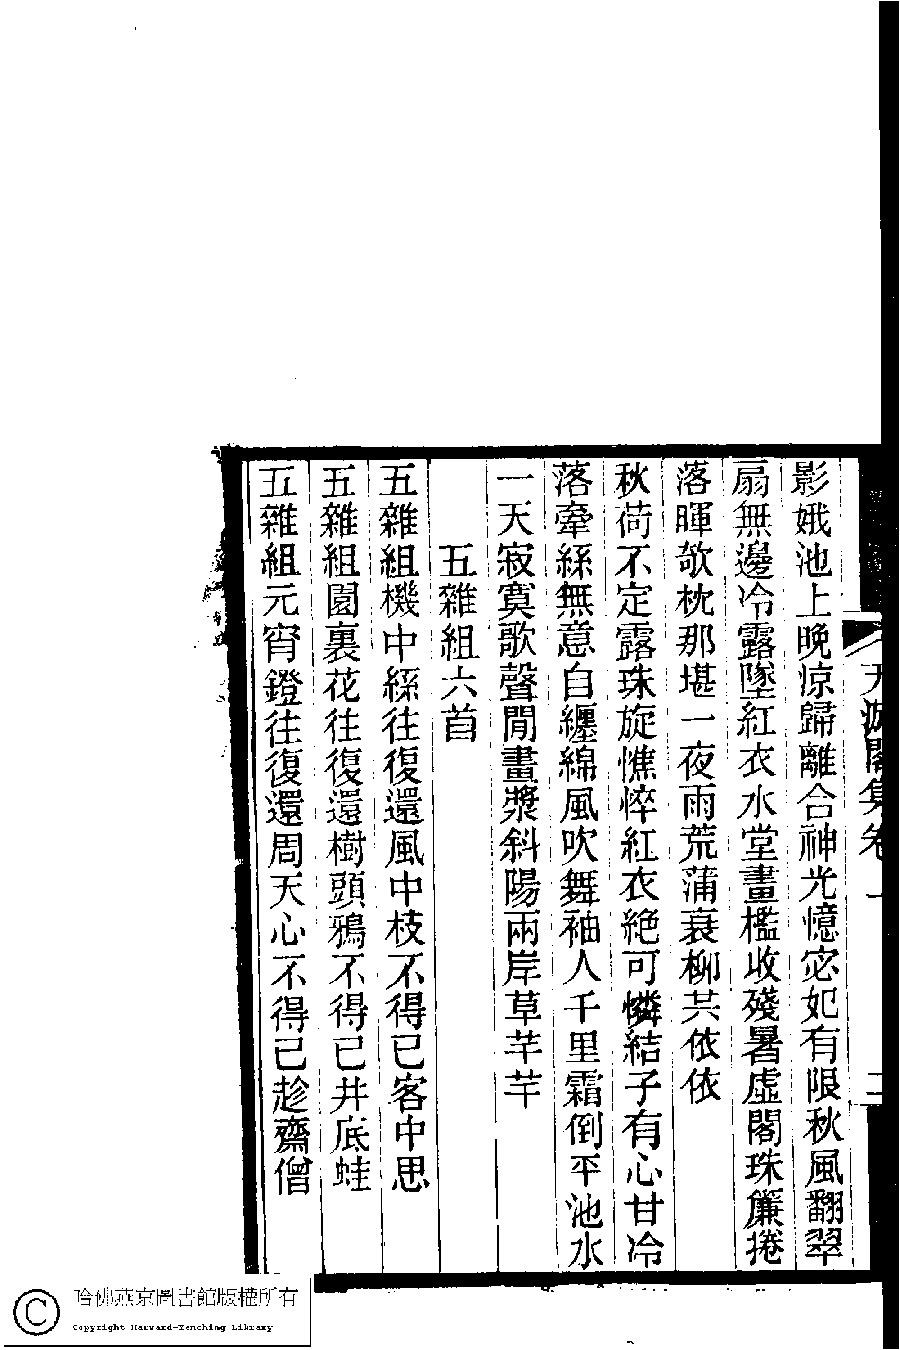 影娥池上晚涼歸離合神光憶宓妃有限秋風翻翠
扇無邊冷露墜紅衣水堂畫檻收殘暑虛閣珠簾捲
落暉欹枕那堪一夜雨荒蒲衰柳共依依
秋荷不定露珠旋憔悴紅衣絶可憐結子有心甘冷
落牽絲無意自纏綿風吹舞袖人千里霜倒平池水
一天寂寞歌聲聞畫槳斜陽兩岸草芊芊
五雜組六首
五雜組機中絲往復還風中枝不得已客中思
五雜組園裏花往復還樹頭鴉不得已井底蛙
五雜組元宵鐙往復還周天心不得已趁齋僧
天游閣集卷一
二
哈佛燕京圖書館版權所有
Copyright Harvard-Yenching Library